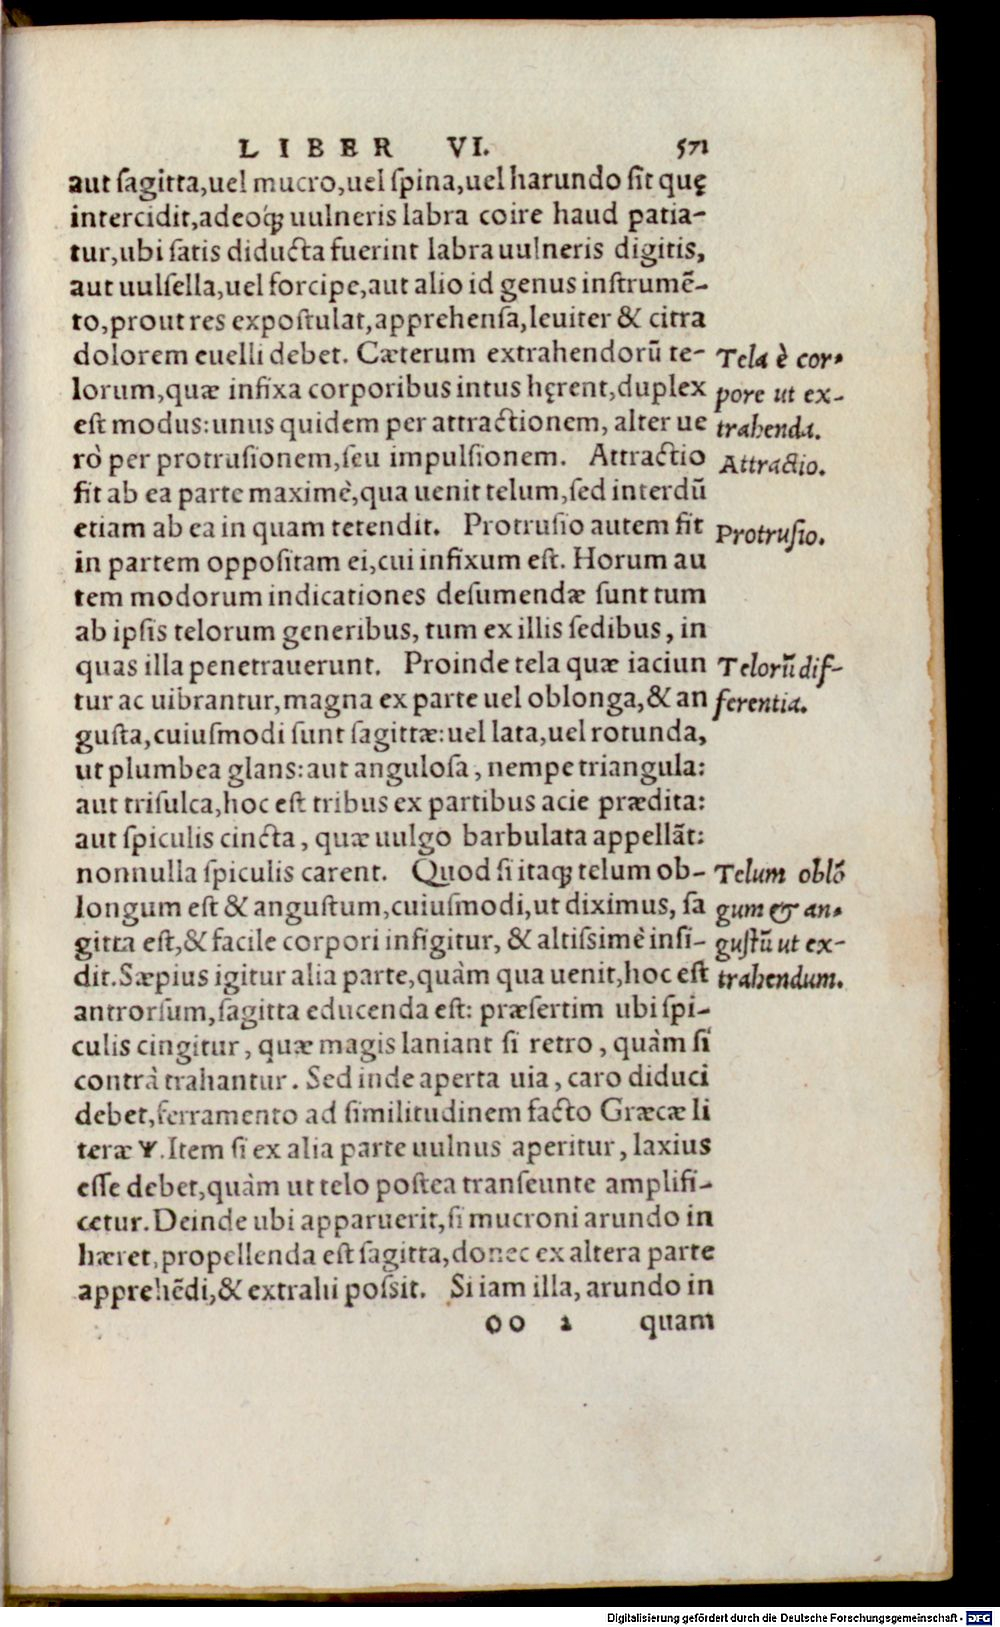 LIBER VI. 571
aut sagitta,uel mucro,uel spina,uel harundo sit quę
intercidit,adeoq́ꝫ uulneris labra coire haud patia-
tur,ubi satis diducta fuerint labra uulneris digitis,
aut uulsella,uel forcipe,aut alio id genus instrumē-
to,prout res expostulat,apprehensa,leuiter & citra
dolorem euelli debet. Cæterum extrahendorū te-
lorum,quæ infixa corporibus intus hęrent,duplex
est modus:unus quidem per attractionem, alter ue
rò per protrusionem,seu impulsionem. Attractio
fit ab ea parte maximè,qua uenit telum,sed interdū
etiam ab ea in quam tetendit. Protrusio autem fit
in partem oppositam ei,cui infixum est. Horum au
tem modorum indicationes desumendæ sunt tum
ab ipsis telorum generibus, tum ex illis sedibus, in
quas illa penetrauerunt. Proinde tela quæ iaciun
tur ac uibrantur,magna ex parte uel oblonga,& an
gusta,cuiusmodi sunt sagittæ:uel lata,uel rotunda,
ut plumbea glans:aut angulosa, nempe triangula:
aut trisulca,hoc est tribus ex partibus acie prædita:
aut spiculis cincta, quæ uulgo barbulata appellāt:
nonnulla spiculis carent. Quod si itaqꝫ telum ob-
longum est & angustum,cuiusmodi,ut diximus, sa
gitta est,& facile corpori infigitur, & altissimè insi-
dit. Sæpius igitur alia parte,quàm qua uenit,hoc est
antrorsum,sagitta educenda est: præsertim ubi spi-
culis cingitur, quæ magis laniant si retro, quàm si
contrà trahantur. Sed inde aperta uia, caro diduci
debet,ferramento ad similitudinem facto Græcæ li
teræ Ψ. Item si ex alia parte uulnus aperitur, laxius
esse debet,quàm ut telo postea transeunte amplifi-
cetur. Deinde ubi apparuerit,si mucroni arundo in
hæret,propellenda est sagitta,donec ex altera parte
apprehēdi,& extrahi possit. Si iam illa, arundo in
oo 2 quam
Tela è cor-
pore ut ex-
trahenda.
Attractio.
Protrusio.
Telorū dif-
ferentia.
Telum oblō
gum & an-
gustū ut ex-
trahendum.
Digitalisierung gefördert durch die Deutsche Forschungsgemeinschaft - DFG